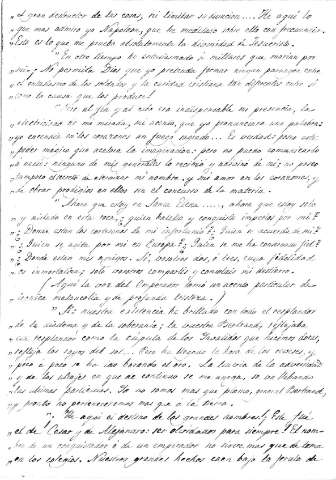 el gran destructor de las cosas, ni limitar su funcion.... He aquí lo
que mas admiro yo Napoleon, que he meditado sobre ello con frecuencia.
Esto es lo que me prueba absolutamente la divinidad de Jesucristo.
"En otro tiempo he entusiasmado á millares que morian por
mí. ¡No permita Dios que yo pretenda formar ningun parangon entre
el entusiasmo de los soldados y la caridad cristiana tan diferentes entre sí
como la causa que los produce!
"En el fin yo era indispensable mi presencia, la
electricidad de mi mirada, mi acento, que yo pronunciara una palabra:
yo encendia en los corazones un fuego sagrado... Es verdad poseo este
poder mágico que acelera la imaginacion: pero no puedo comunicarlo
á nadie: ninguno de mis generales lo recibió y adivinó de mí; no poseo
tampoco el secreto de eternizar mi nombre y mi amor en los corazones, y
de obrar prodigios en ellos sin el concurso de la materia.
"Ahora que estoy en Santa Elena....., ahora que estoy solo
y aislado en esta roca, ¿quien batalla y conquista imperios por mí?
¿Donde estan los cortesanos de mi infortunio? ¿Quien se acuerda de mí?
¿Quien se agita por mí en Europa? ¿Quien se me ha conservado fiel?
¿Donde estan mis amigos? Sí, vosotros dos, ó tres, cuya fidelidad
es inmortalizada; solo vosotros compartís y consolais mi destierro.
(Aquí la voz del Emperador tomó un acento particular de
ironica melancolia y de profunda tristeza.)
"Sí: nuestra existencia ha brillado con todo el resplandor
de la diadema y de la soberania; la vuestra Bertrand, reflejaba
su resplandor como la cúpula de los Inválidos que hicimos dorar,
refleja los rayos del sol.... Pero ha llegado la hora de los reveses, y
poco á poco se ha ido borrando el oro. La lluvia de la adversidad
y de los ultrajes en que de continuo se me anega, se va llevando
las últimas partículas. Ya no somos mas que plomo, general Bertrand,
y pronto no perteneceremos mas que á la tierra.
"¡He aquí el destino de los grandes hombres! Este fué
el de Cesar y de Alejandro: ser olvidados para siempre! El nom-
bre de un conquistador ó de un emperador no sirve mas que de tema
en los colegios. Nuestros grandes hechos caen bajo la férula de